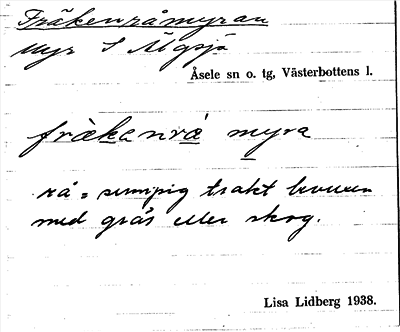 Fräkenråmyran
Myr S Älgsjö
Åsele sn o. tg, Västerbottens l.
fräkanrå myra
rå = sumpig trakt bevuxen
med gräs eller skog.
Lisa Lidberg 1938.